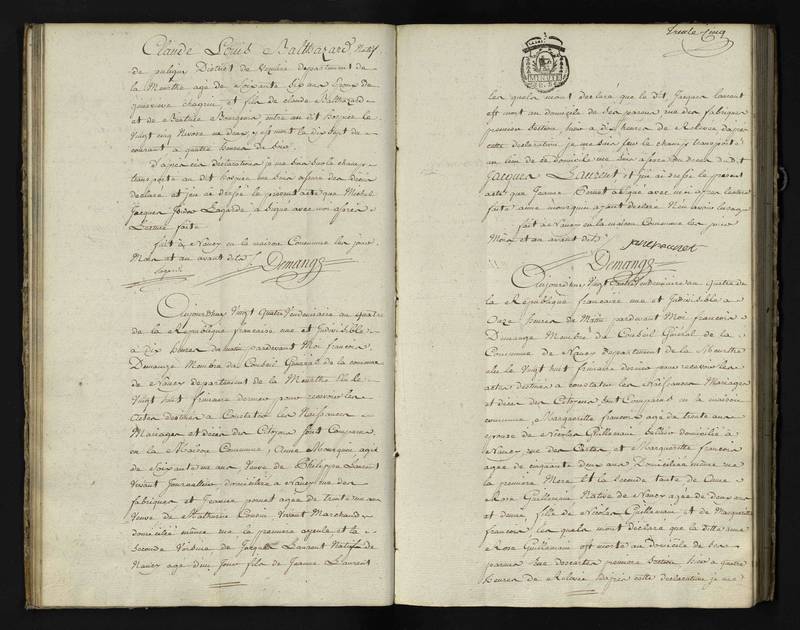 Claude Louis Balthazard Natif
de puligny District de Vezelise departement de
la Meurthe agé de Soixante Six ans Epoux de
genevieve chagrin et fils de claude Balthazard
et de Beatrice Bourgeois entré au dit hospice le
Vingt cinq Nivose an deux, y est mort le dix Sept du
courant a quatre heures du Soir
D'après cette déclaration je me suis sur le champ
transporté au dit hospice me suis assuré du décès
declaré et j'en ai dressé le présent acte que Michel
Jacques Lagarde a Signé avec moi après
Lecture faite
fait à Nancy en la maison Commune les jour
Mois et an avant dits
Lagarde Demange
Aujourd'hui Vingt Quatre Vendemiaire an quatre
de la Republique francaise une et Indivisible
a dix heures du matin pardevant Moi francois
Demange Membre du Conseil Général de la commune
de Nancy departement de la Meurthe Elu le
Vingt huit frimaire dernier pour recevoir les
actes destinés a Constater les Naissances
Mariages et décès des Citoyens Sont Comparus
en la Maison Commune, Anne Mourquin agée
de Soixante un ans Veuve de Philippe Laurent
Vivant Journalier domiciliée a Nancy rue des
fabriques et Jeanne pouret agée de trente un ans
Veuve de Mathurin Cousin Vivant Marchand
domiciliée même rue la première ayeule et la
Seconde Voisine de Jacques Laurent Natif de
Nancy agé d'un Jour fils de Jeanne Laurent
trente Cinq
les quels m'ont declaré que le Dit Jacques Laurent
est mort au domicile de Ses parens rue des fabriques
premiere Section hier a dix heures de Relevée d'après
cette declaration je me suis sur le champ transporté
au lieu de ce domicile me suis assuré du décès du Dit
Jacques Laurent et j'en ai dressé le présent
acte que Jeanne Pouret a Signé avec moi après lecture
faite anne mourquin ayant declaré N'en avoir l'usage
fait à Nancy en la maison Commune les jour
Mois et an avant dits
jane pouret
Demange
Aujourd'hui Vingt Quatre Vendemiaire an quatre de
la Republique francaise une et Indivisible a
Onze heures du Matin pardevant Moi francois
Demange Membre du Conseil Général de la
Commune de Nancy departement de la Meurthe
elu le Vingt huit frimaire dernier pour recevoir les
actes destinés a constater les Naissances Mariages
et décès des Citoyens Sont Comparus en la maison
commune, Margueritte francois agée de trente ans
epouse de Nicolas Guillemain domiciliée a
Nancy rue des Cartes et Margueritte francois
agée de cinquante deux ans Domiciliée même rue
la premiere Mere Et la seconde tante de
Rose Guillemain Native de Nancy agée de deux ans
et demie fille de Nicolas Guillemain et de Margueritte
francois, les quels m'ont déclaré que la Ditte anne
Rose Guillemain est morte au Domicile de Ses
parens rue descartes premiere Section hier a quatre
heures de Relevée D'après cette declaration je me